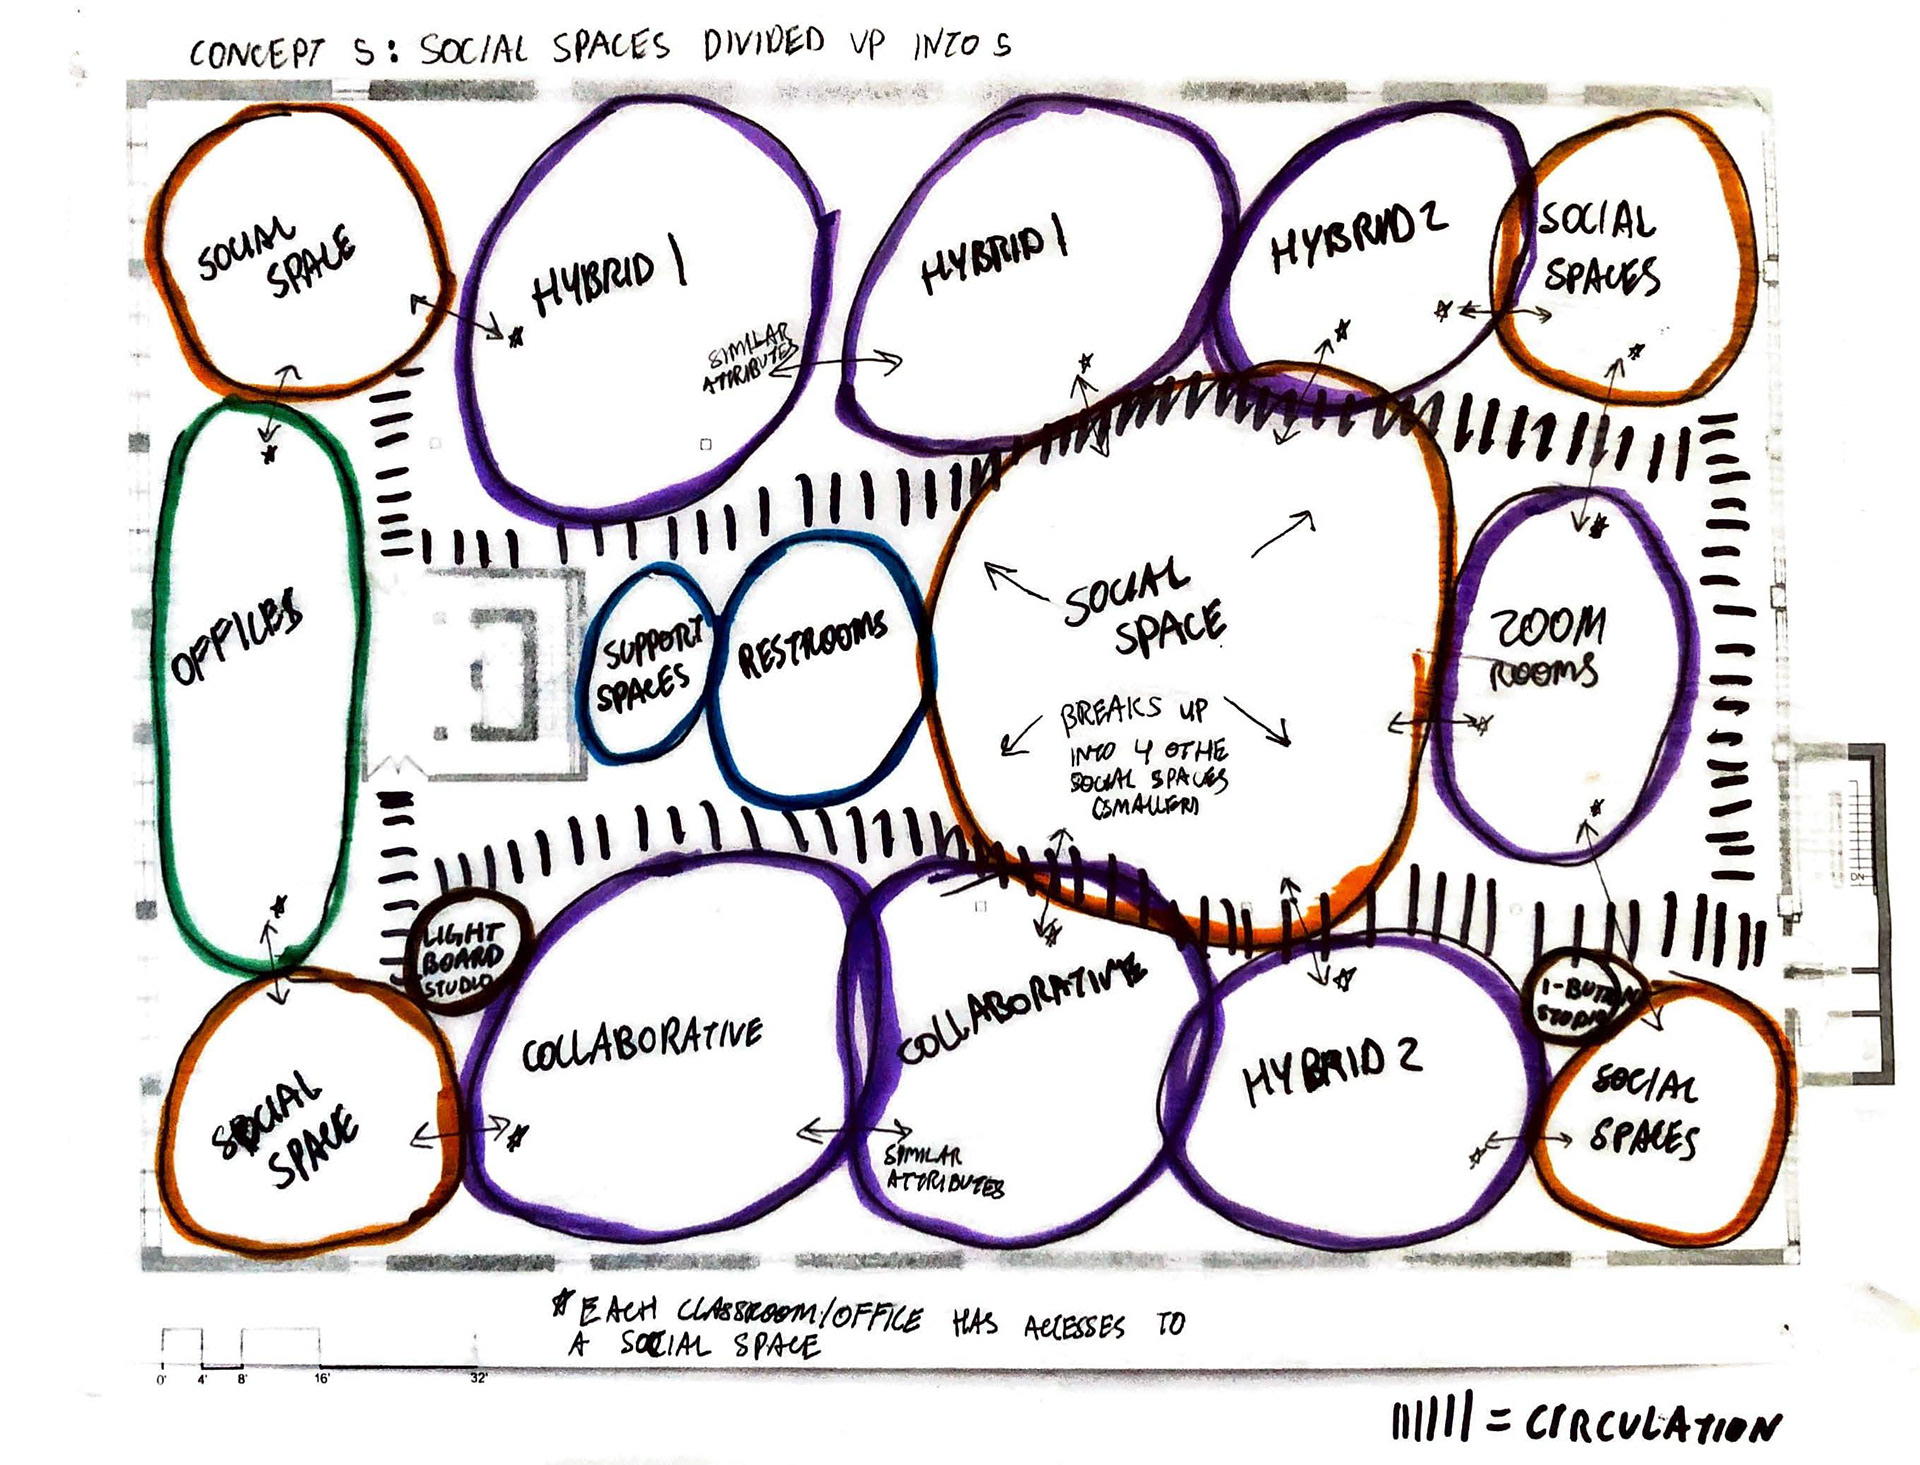 CONCEPT 5: SOCIAL SPACES DIVIDED UP INTO 5
SOCIAL
SPACE
HYBRID 1
SIMILAR
ATTRIBUTES
HYBRID 1
HYBRID 2
SOCIAL
SPACES
OFFICES
SUPPORT
SPACES
RESTROOMS
SOCIAL
SPACE
BREAKS UP
INTO 4 OTHE
SOCIAL SPACES
(SMALLER)
ZOOM
ROOMS
LIGHT
BOARD
STUDIO
COLLABORATIVE
COLLABORATIVE
SIMILAR
ATTRIBUTES
HYBRID 2
1-BUTTON
STUDIO
SOCIAL
SPACE
SOCIAL
SPACES
DN
* EACH CLASSROOM/OFFICE HAS ACCESSES TO
A SOCIAL SPACE
0' 4' 8' 16' 32'
= CIRCULATION